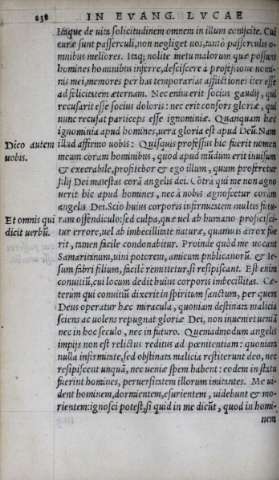 238 IN EVANG. LVCAE
Itaque de uita solicitudinem omnem in illum conijcite. Cui
curæ sunt passerculi, non negliget uos, tanto passerculis o-
mnibus meliores. Itaq; nolite metu malorum quæ possunt
homines hominibus inferre, desciscere a professione nomi-
nis mei, memores per has temporarias afflictiones iter esse
ad felicitatem æternam. Nec enim erit socius gaudij, qui
recusarit esse socius doloris: nec erit consors gloriæ, qui
nunc recusat particeps esse ignominiæ. Quanquam hæc
ignominia apud homines, uera gloria est apud Deũ. Nam
Dico autem
uobis.
illud affirmo uobis: Quisquis professus hic fuerit nomen
meum coram hominibus, quod apud mũdum erit inuisum
& execrabile, profitebor & ego illum, quum proferetur
filij Dei maiestas corã angelis dei. Cõtrà qui me non agno
uerit hic apud homines, nec à nobis agnoscetur coram
angelis Dei. Scio huius corporis infirmitatem multis futu-
Et omnis qui
dicit uerbũ.
ram offendiculo: sed culpa, quæ uel ab humano proficisci-
tur errore, uel ab imbecillitate naturæ, quamuis atrox fue
rit, tamen facile condonabitur. Proinde quòd me uocant
Samaritanum, uini potorem, amicum publicanorũ, & Ie-
sum fabri filium, facilè remittetur, si resipiscant. Est enim
conuitiũ, cui locum dedit huius corporis imbecillitas. Ce-
terum qui conuitiũ dixerit in spiritum sanctum, per quem
Deus operatur hæc miracula, quoniam destinata malicia
sciens ac uolens repugnat gloriæ Dei, non inueniet ueniã
nec in hoc seculo, nec in futuro. Quemadmodum angelis
impijs non est relictus reditus ad pœnitentiam: quoniam
nulla infirmitate, sed obstinata malicia resisterunt deo, nec
resipiscent unquã, nec ueniæ spem habent: eodem in statu
fuerint homines, peruersitatem illorum imitantes. Me ui-
dent hominem, dormientem, esurientem, uidebunt & mo-
rientem: ignosci potest, si quid in me dicũt, quod in homi-
nem